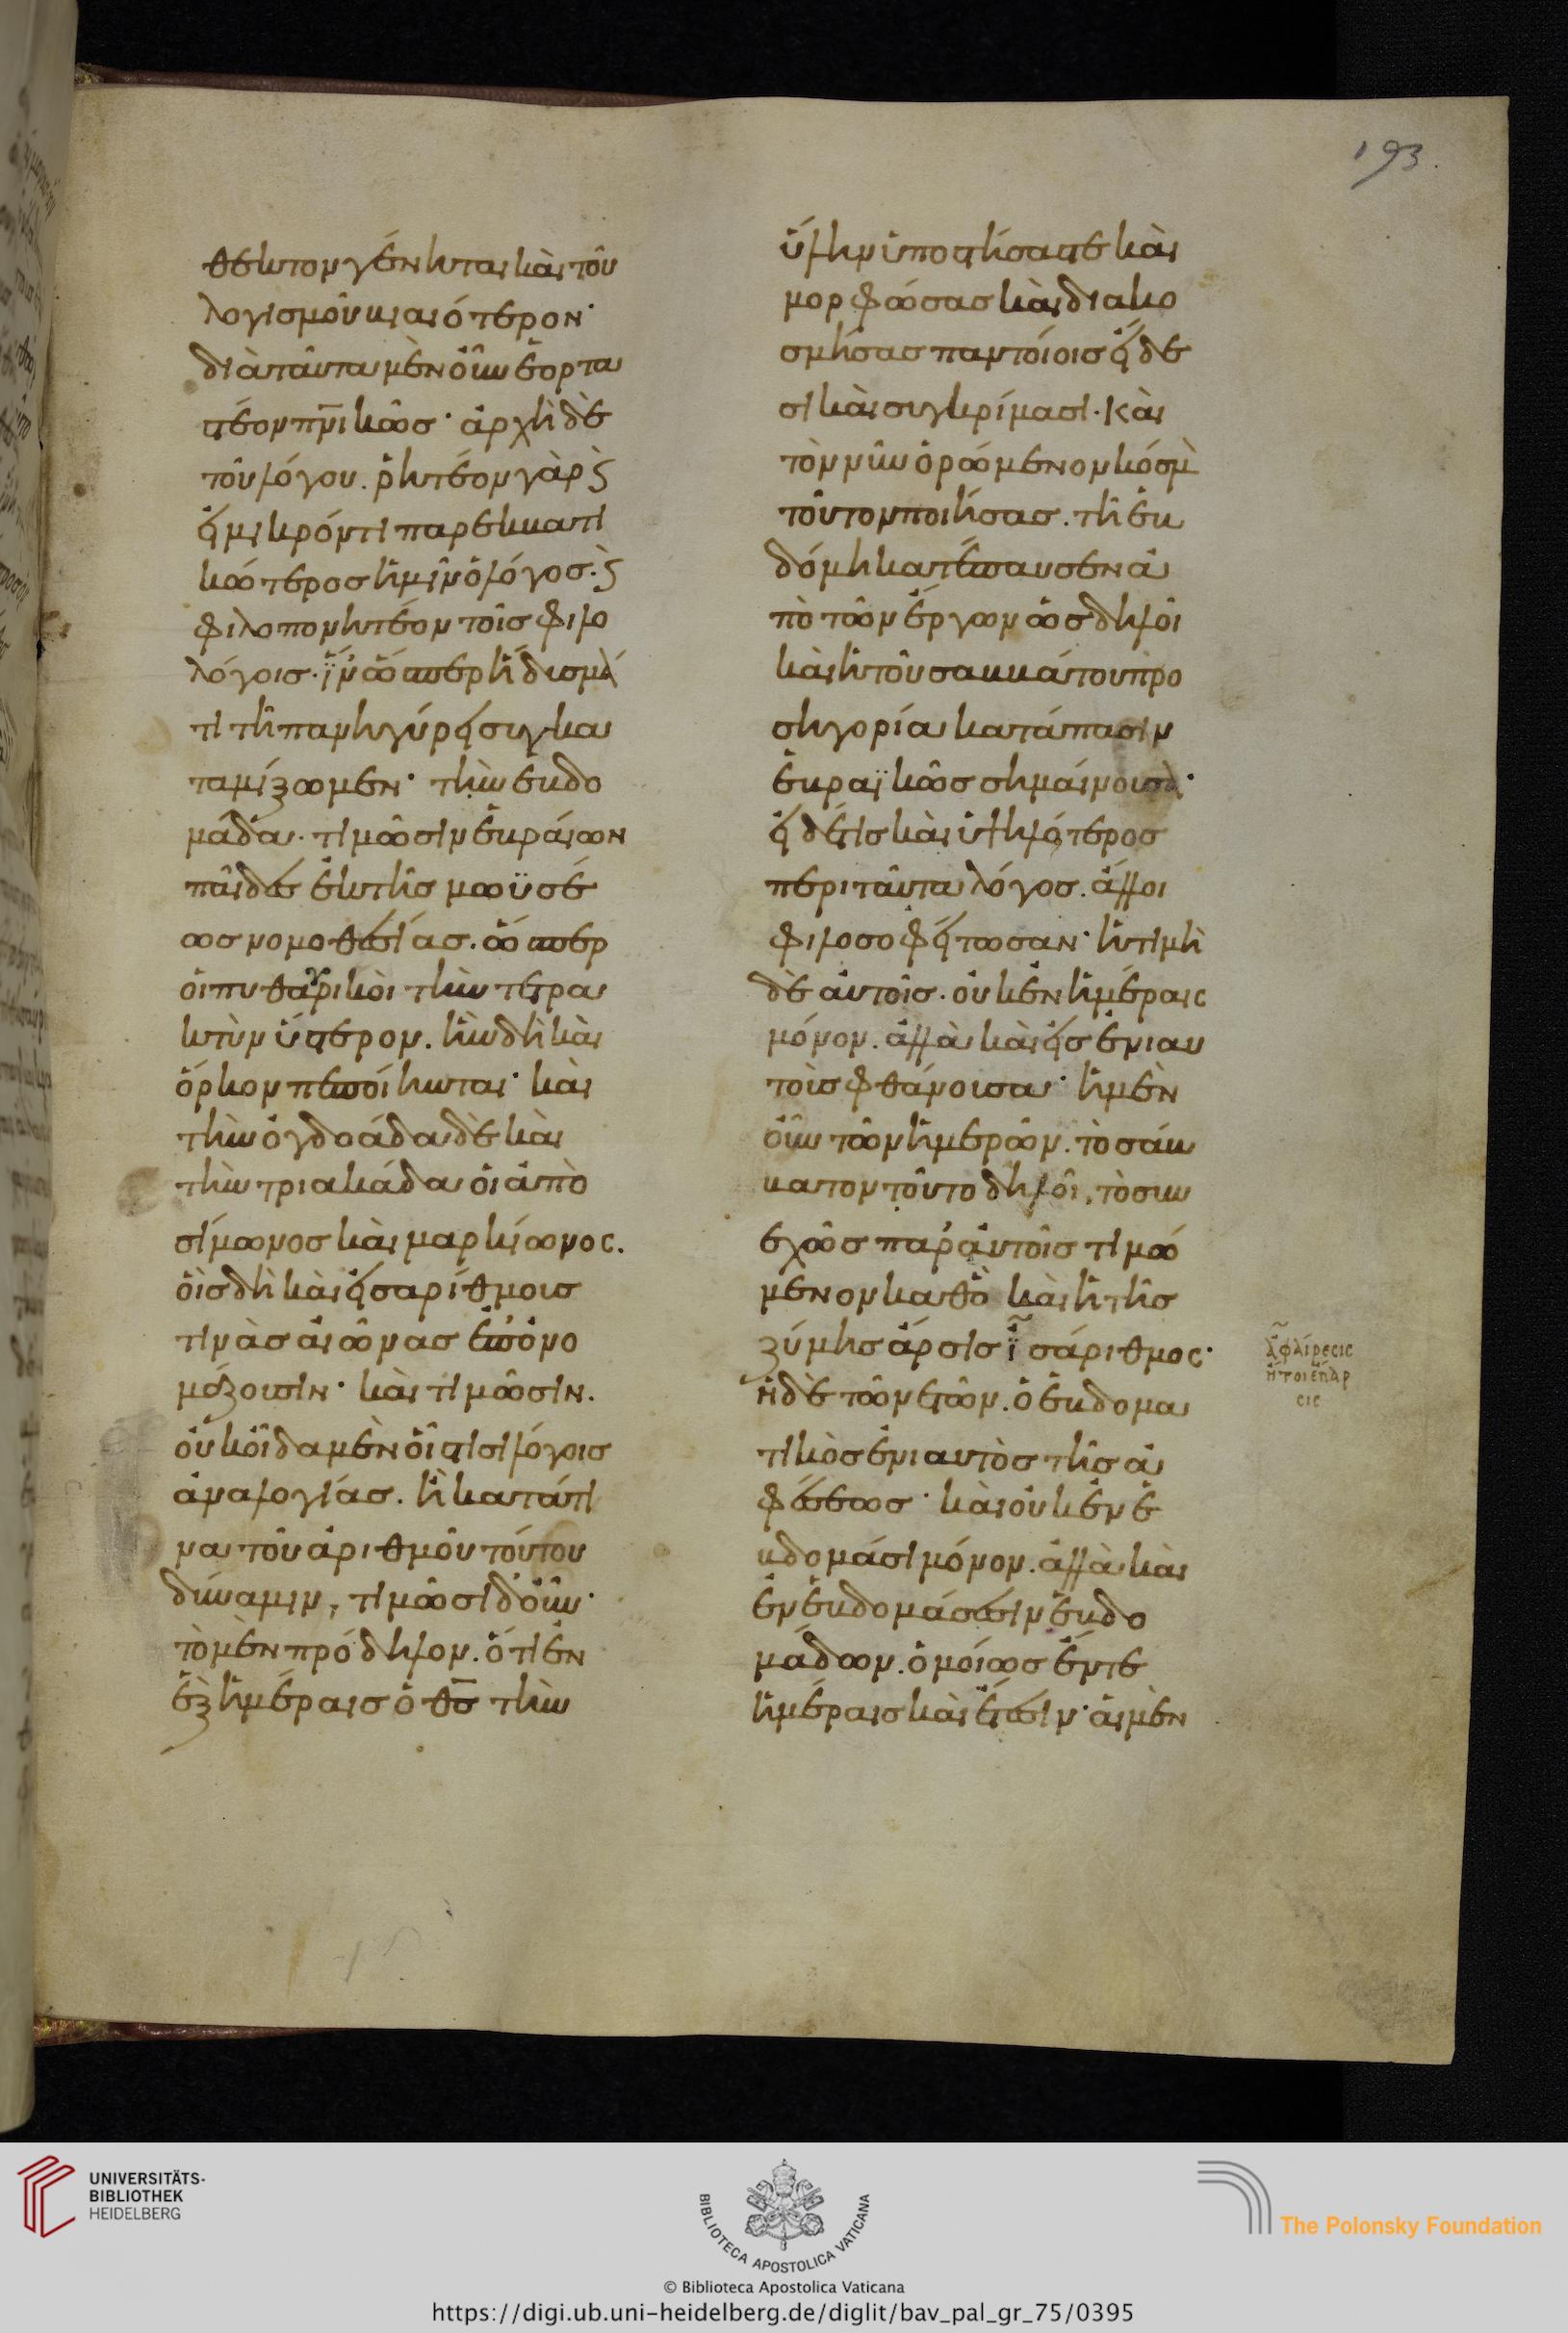 193.
θεωτον γένηται καὶ τοῦ
λογισμοῦ βιαιότερον·
διὰ ταῦτα μὲν οὖν ἑορτα
στέον πν̅ικῶς· ἀρχὴ δὲ
τοῦ λόγου. ῥητέον γὰρ ϗ
εἰ μικρόν τι παρεκβατι
κώτερος ἡμῖν ὁ λόγος· ϗ
φιλοπονητέον τοῖς φιλο
λόγοις· ἵν' ὥσπερ ἥδυσμά
τι τῇ πανηγύρει συγκα
ταμίξωμεν· τὴν ἑβδο
μάδα· τιμῶσιν ἑβραίων
παῖδες ἐκ τῆς μωϋσέ
ως νομοθεσίας. ὥσπερ
οἱ πυθαγορικοὶ τὴν τετρα
κτὺν ὕστερον. ἣν δὴ καὶ
ὅρκον πεποίηνται· καὶ
τὴν ὀγδοάδα δὲ καὶ
τὴν τριακάδα οἱ ἀπὸ
σίμωνος καὶ μαρκίωνος.
οἷς δὴ καὶ εἰσαρίθμους
τινὰς αἰῶνας ἐπονο
μάζουσιν· καὶ τιμῶσιν.
οὐκ οἶδα μὲν οἷστισι λόγοις
ἀναλογίας. ἢ κατὰ τί
να τοῦ ἀριθμοῦ τούτου
δύναμιν, τιμῶσι δ' οὖν·
τὸ μὲν πρόδηλον. ὅτι ἐν
ἓξ ἡμέραις ὁ θσ̅ τὴν
ὕλην ὑποστήσας τε καὶ
μορφώσας καὶ διακο
σμήσας παντοίοις εἴδε
σι καὶ συγκρίμασι· καὶ
τὸν νῦν ὁρώμενον κόσμὸ
τοῦτον ποιήσας. τῇ ἑβ
δόμῃ κατέπαυσεν ἀ
πὸ τῶν ἔργων ὡς δηλοῖ
καὶ ἡ τοῦ σαββάτου προ
σηγορία κατάπαυσιν
ἑβραϊκῶς σημαίνουσα·
εἰ δέ τις καὶ ὑψηλότερος
περὶ ταῦτα λόγος. ἄλλοι
φιλοσοφείτωσαν· ἡ τιμὴ
δὲ αὐτοῖς· οὐκ ἐν ἡμέραις
μόνον. ἀλλὰ καὶ εἰς ἐνιαυ
τοὺς φθάνουσα· ἡ μὲν
οὖν τῶν ἡμερῶν. τὸ σάβ
βατον τοῦτο δηλοῖ, τὸ συν
εχῶς παρ' αὐτοῖς τιμώ
μενον καθὸ καὶ ἡ τῆς
ζύμης ἄρσις ἰσάριθμος·
ἡ δὲ τῶν ἐτῶν. ὁ ἑβδομα
τικὸς ἐνιαυτὸς τῆς ἀ
φέσεως· καὶ οὐκ ἐν ἑ
βδομάσι μόνον. ἀλλὰ καὶ
ἐν ἑβδομάσεσιν ἑβδο
μάδων. ὁμοίως ἔν τε
ἡμέραις καὶ ἔτεσιν· αἱ μὲν
ἀφαίρεσις
ἤτοι ἔπαρ
σις
UNIVERSITÄTS-
BIBLIOTHEK
HEIDELBERG
BIBLIOTECA APOSTOLICA VATICANA
The Polonsky Foundation
© Biblioteca Apostolica Vaticana
https://digi.ub.uni-heidelberg.de/diglit/bav_pal_gr_75/0395